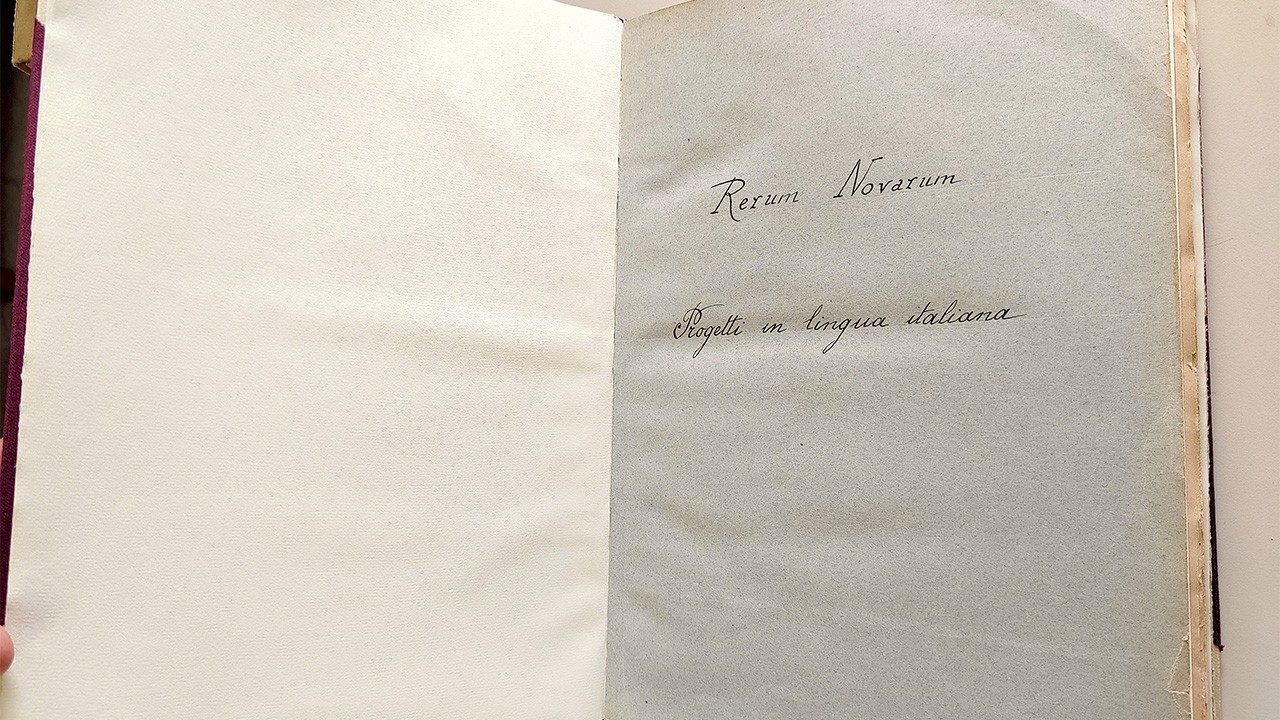 Rerum Novarum
Progetti in lingua italiana